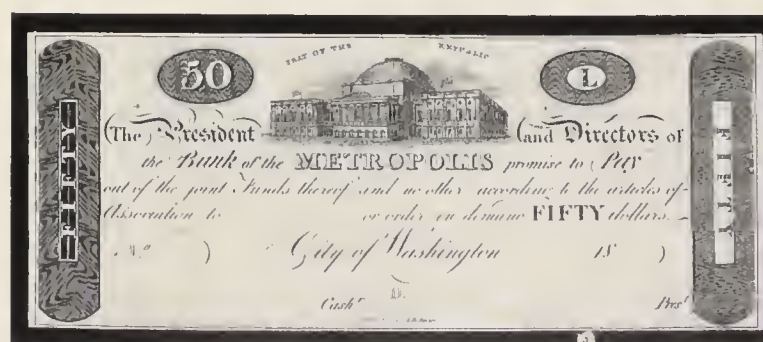 50
L
SEAT OF THE REPUBLIC
The President and Directors of
the Bank of the METROPOLIS promise to Pay
out of the joint Funds thereof and no other according to the articles of
Association to or order on demand FIFTY dollars.
FIFTY
FIFTY
City of Washington 18
Cashr. Prest.